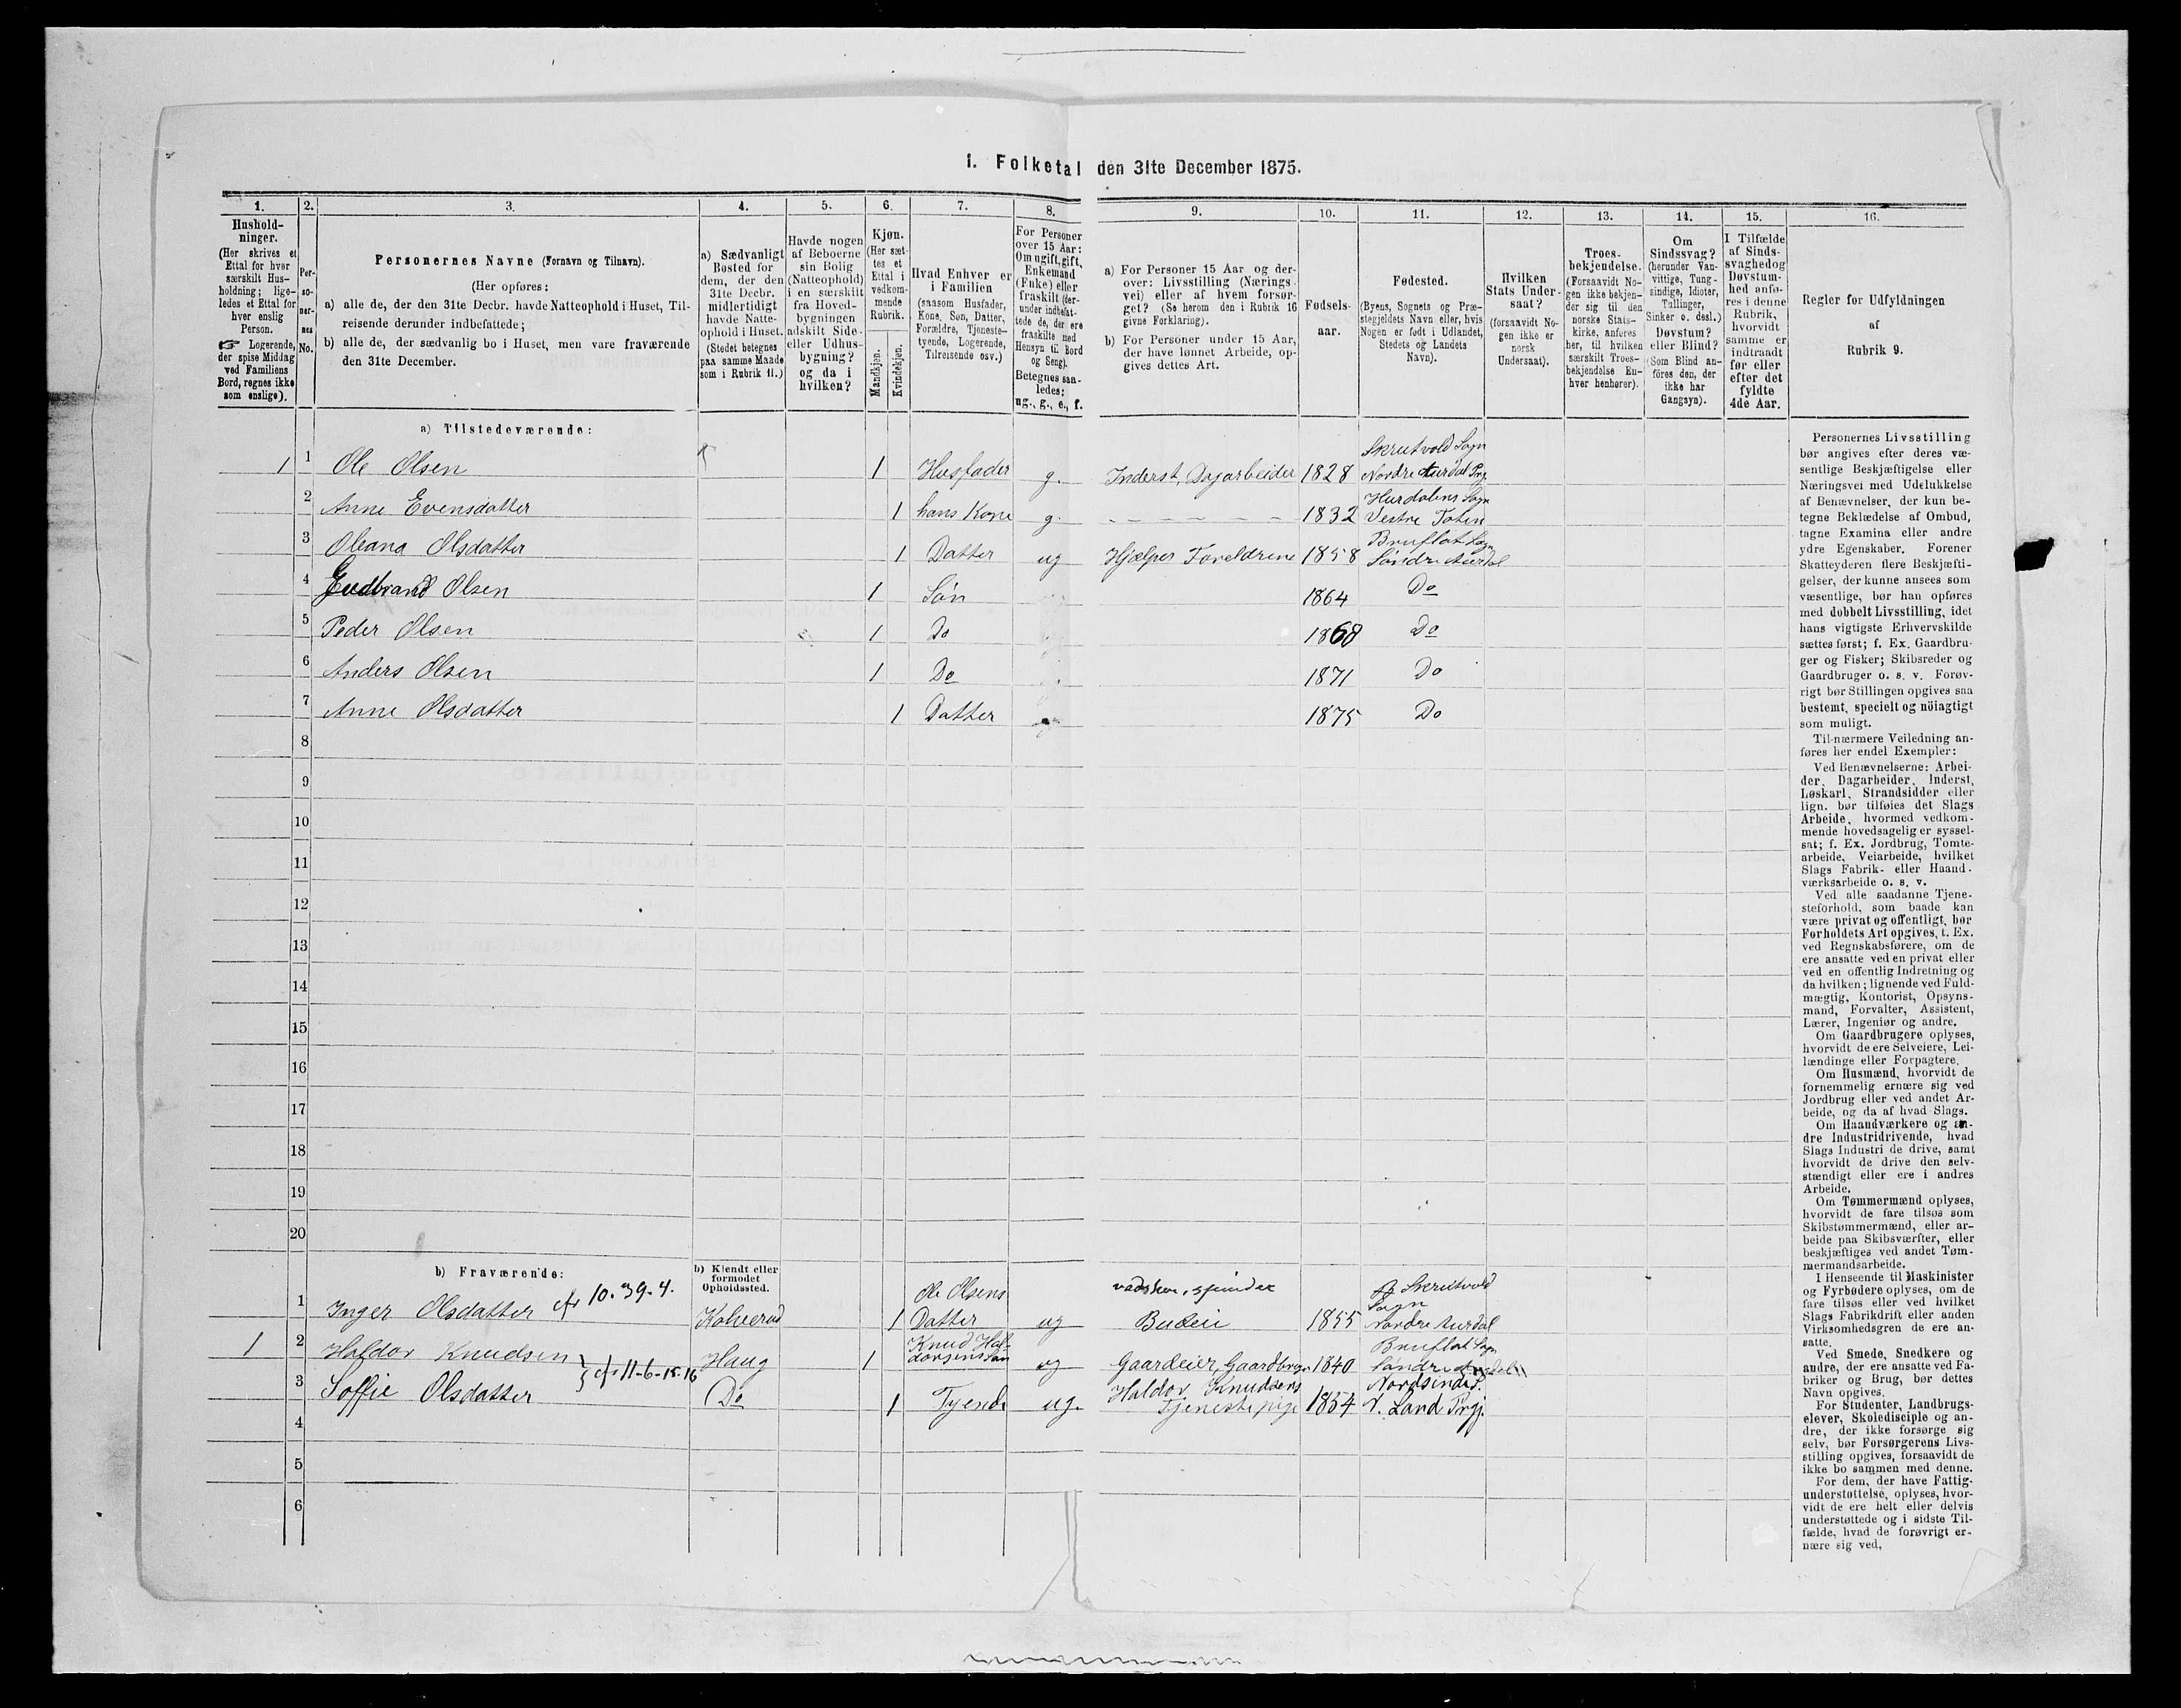 1. Folketal den 31te December 1875.
1.
Hushold-
ninger.
(Her skrives et
Ettal for hver
særskilt Hus-
holdning; lige-
ledes et Ettal for
hver enslig
Person.
☞ Logerende,
der spise Middag
ved Familiens
Bord, regnes ikke
som enslige).
2.
Per-
so-
ner-
nes
No.
3.
Personernes Navne (Fornavn og Tilnavn).
(Her opføres:
a) alle de, der den 31te Decbr. havde Natteophold i Huset, Til-
reisende derunder indbefattede;
b) alle de, der sædvanlig bo i Huset, men vare fraværende
den 31te December.
4.
a) Sædvanligt
Bosted for
dem, der den
31te Decbr.
midlertidigt
havde Natte-
ophold i Huset.
(Stedet betegnes
paa samme Maade
som i Rubrik 11.)
5.
Havde nogen
af Beboerne
sin Bolig
(Natteophold)
i en særskilt
fra Hoved-
bygningen
adskilt Side-
eller Udhus-
bygning?
og da i
hvilken?
6.
Kjøn.
(Her sæt-
tes et
Ettal i
vedkom-
mende
Rubrik.
Mandkjøn.
Kvindekjøn.
7.
Hvad Enhver er
i Familien
(saasom Husfader,
Kone, Søn, Datter,
Forældre, Tjeneste-
tyende, Logerende,
Tilreisende osv.)
8.
For Personer
over 15 Aar:
Om ugift, gift,
Enkemand
(Enke) eller
fraskilt (der-
under indbefat-
tede de, der ere
fraskilte med
Hensyn til Bord
og Seng).
Betegnes saa-
ledes:
ug., g., e., f.
9.
a) For Personer 15 Aar og der-
over: Livsstilling (Nærings-
vei) eller af hvem forsør-
get? (Se herom den i Rubrik 16
givne Forklaring).
b) For Personer under 15 Aar,
der have lønnet Arbeide, op-
gives dettes Art.
10.
Fødsels-
aar.
11.
Fødested.
(Byens, Sognets og Præ-
stegjeldets Navn eller, hvis
Nogen er født i Udlandet,
Stedets og Landets
Navn).
12.
Hvilken
Stats Under-
saat?
(forsaavidt No-
gen ikke er
norsk
Undersaat).
13.
Troes-
bekjendelse.
(Forsaavidt No-
gen ikke bekjen-
der sig til den
norske Stats-
kirke, anføres
her, til hvilken
særskilt Troes-
bekjendelse En-
hver henhører).
14.
Om
Sindssvag?
(herunder Van-
vittige, Tung-
sindige, Idioter,
Tullinger,
Sinker o. desl.)
Døvstum?
eller Blind?
(Som Blind an-
føres den, der
ikke har
Gangsyn).
15.
I Tilfælde
af Sinds-
svaghed og
Døvstum-
hed anfø-
res i denne
Rubrik,
hvorvidt
samme er
indtraadt
før eller
efter det
fyldte
4de Aar.
16.
Regler for Udfyldningen
af
Rubrik 9.
a) Tilstedeværende:
1 1 Ole Olsen 1 Husfader g. Inderst, Dagarbeider 1828 Skrutvold Sogn Nordre Aurdal Prg.
2 Anne Evensdatter 1 hans Kone g. 1832 Hurdalens Sogn Vestre Toten
3 Oleana Olsdatter 1 Datter ug Hjælper Foreldrene 1858 Bruflat Sogn Søndre Aurdal
4 Gudbrand Olsen 1 Søn 1864 Do
5 Peder Olsen 1 Do 1868 Do
6 Anders Olsen 1 Do 1871 Do
7 Anne Olsdatter 1 Datter 1875 Do
8
9
10
11
12
13
14
15
16
17
18
19
20
b) Fraværende:
b) Kjendt eller
formodet
Opholdssted.
1 Inger Olsdatter cfr 10.39.4. Kolverud 1 Ole Olsens Datter ug Budeie 1855 Skrutvold Sogn Nordre Aurdal
1 2 Haldor Knudsen Haug 1 Knud Haldorsens Søn ug Gaardeier, Gaardbrgr 1840 Bruflat Sogn Søndre Aurdal
} cfr 11-6-15-16
3 Soffie Olsdatter Do 1 Tyende ug. Haldor Knudsens Tjenestepige 1854 Nordsinds. N. Land Prgj.
4
5
6
Personernes Livsstilling
bør angives efter deres væ-
sentlige Beskjæftigelse eller
Næringsvei med Udelukkelse
af Benævnelser, der kun be-
tegne Beklædelse af Ombud,
tagne Examina eller andre
ydre Egenskaber. Forener
Skatteyderen flere Beskjæfti-
gelser, der kunne ansees som
væsentlige, bør han opføres
med dobbelt Livsstilling, idet
hans vigtigste Erhvervskilde
sættes først; f. Ex. Gaardbru-
ger og Fisker; Skibsreder og
Gaardbruger o. s. v. Forøv-
rigt bør Stillingen opgives saa
bestemt, specielt og nöiagtigt
som muligt.
Til nærmere Veiledning an-
føres her endel Exempler:
Ved Benævnelserne: Arbei-
der, Dagarbeider, Inderst,
Løskarl, Strandsidder eller
lign. bør tilføies det Slags
Arbeide, hvormed vedkom-
mende hovedsagelig er syssel-
sat; f. Ex. Jordbrug, Tomte-
arbeide, Veiarbeide, hvilket
Slags Fabrik- eller Haand-
værksarbeide o. s. v.
Ved alle saadanne Tjene-
steforhold, som baade kan
være privat og offentligt, bør
Forholdets Art opgives, t. Ex.
ved Regnskabsførere, om de
ere ansatte ved en privat eller
ved en offentlig Indretning og
da hvilken; lignende ved Fuld-
mægtig, Kontorist, Opsyns-
mand, Forvalter, Assistent,
Lærer, Ingeniør og andre.
Om Gaardbrugere oplyses,
hvorvidt de ere Selveiere, Lei-
lændinge eller Forpagtere.
Om Husmænd, hvorvidt de
fornemmelig ernære sig ved
Jordbrug eller ved andet Ar-
beide, og da af hvad Slags.
Om Haandværkere og an-
dre Industridrivende, hvad
Slags Industri de drive, samt
hvorvidt de drive den selv-
stændigt eller ere i andres
Arbeide.
Om Tømmermænd oplyses,
hvorvidt de fare tilsøs som
Skibstømmermænd, eller ar-
beide paa Skibsværfter, eller
beskjæftiges ved andet Tøm-
mermandsarbeide.
I Henseende til Maskinister
og Fyrbødere oplyses, om de
fare tilsøs eller ved hvilket
Slags Fabrikdrift eller anden
Virksomhedsgren de ere an-
satte.
Ved Smede, Snedkere og
andre, der ere ansatte ved Fa-
briker og Brug, bør dettes
Navn opgives.
For Studenter, Landbrugs-
elever, Skoledisciple og an-
dre, der ikke forsørge sig
selv, bør Forsørgerens Livs-
stilling opgives, forsaavidt de
ikke bo sammen med denne.
For dem, der have Fattig-
understøttelse, oplyses, hvor-
vidt de ere helt eller delvis
understøttede og i sidste Til-
fælde, hvad de forøvrigt er-
nære sig ved.